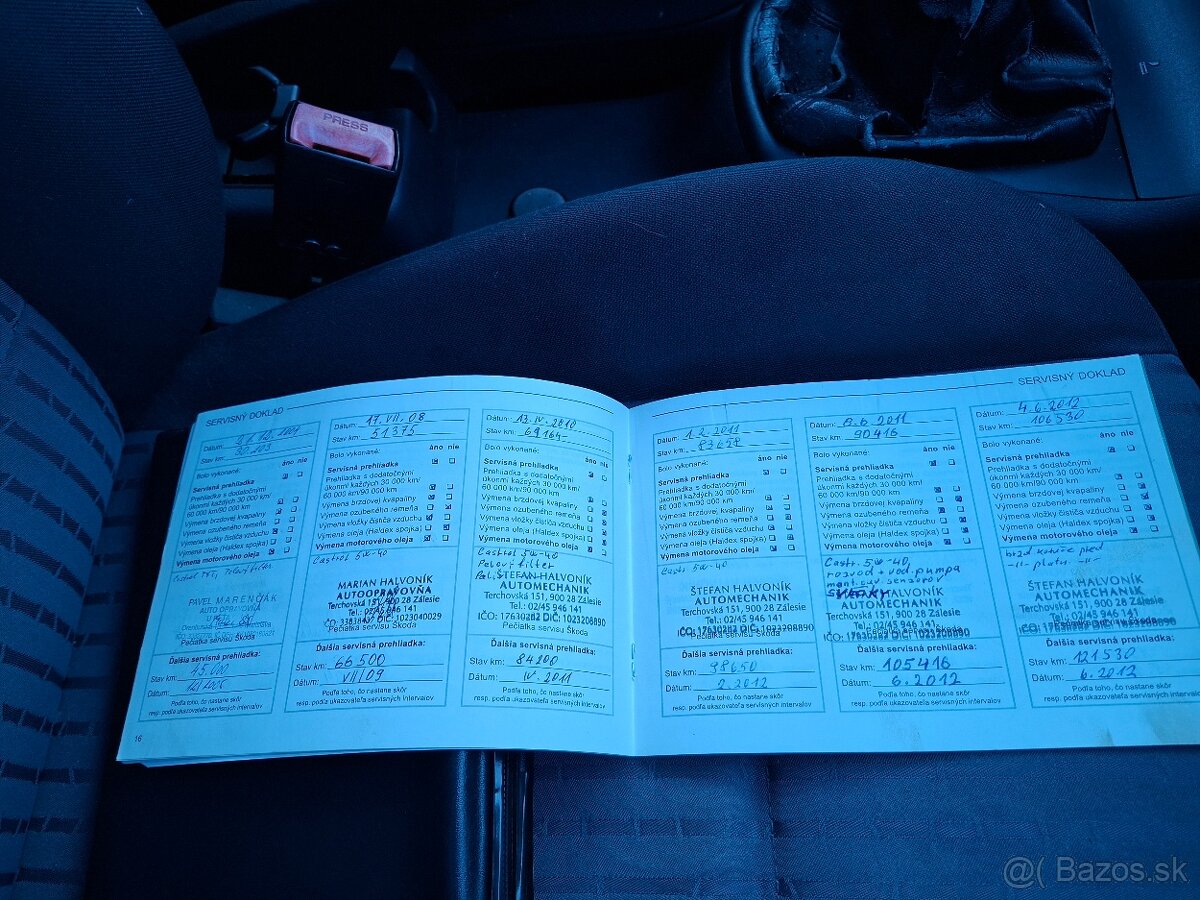 PRESS
SERVISNÝ DOKLAD
Dátum:
Stav km:
Bolo vykonané:
áno nie
Servisná prehliadka
Prehliadka s dodatočnými
úkonmi každých 30 000 km/
60 000 km/90 000 km
Výmena brzdovej kvapaliny
Výmena ozubeného remeňa
Výmena vložky čističa vzduchu
Výmena oleja (Haldex spojka)
Výmena motorového oleja
PAVEL MARENČIAK
AUTOOPRAVOVŇA
Pečiatka servisu Škoda
Ďalšia servisná prehliadka:
Stav km: 45.000
Dátum: 12/2005
Podľa toho, čo nastane skôr
resp. podľa ukazovateľa servisných intervalov
16
Dátum: 17. VII. 08
Stav km: 51375
Bolo vykonané:
áno nie
Servisná prehliadka
Prehliadka s dodatočnými
úkonmi každých 30 000 km/
60 000 km/90 000 km
Výmena brzdovej kvapaliny
Výmena ozubeného remeňa
Výmena vložky čističa vzduchu
Výmena oleja (Haldex spojka)
Výmena motorového oleja
Castrol 5W-40
MARIAN HALVONÍK
AUTOOPRAVOVŇA
Terchovská 151, 900 28 Zálesie
Tel.: 02/45 946 141
DIČ: 1023040029
Pečiatka servisu Škoda
Ďalšia servisná prehliadka:
Stav km: 66 500
Dátum: VII/09
Podľa toho, čo nastane skôr
resp. podľa ukazovateľa servisných intervalov
Dátum: 12. IV. 2010
Stav km: 69164-
Bolo vykonané:
áno nie
Servisná prehliadka
Prehliadka s dodatočnými
úkonmi každých 30 000 km/
60 000 km/90 000 km
Výmena brzdovej kvapaliny
Výmena ozubeného remeňa
Výmena vložky čističa vzduchu
Výmena oleja (Haldex spojka)
Výmena motorového oleja
Castrol 5W-40
Peľový filter
ŠTEFAN HALVONÍK
AUTOMECHANIK
Terchovská 151, 900 28 Zálesie
Tel.: 02/45 946 141
IČO: 17630282 DIČ: 1023208890
Pečiatka servisu Škoda
Ďalšia servisná prehliadka:
Stav km: 84200
Dátum: IV. 2011
Podľa toho, čo nastane skôr
resp. podľa ukazovateľa servisných intervalov
SERVISNÝ DOKLAD
Dátum: 1.2. 2011
Stav km: 83652
Bolo vykonané:
áno nie
Servisná prehliadka
Prehliadka s dodatočnými
úkonmi každých 30 000 km/
60 000 km/90 000 km
Výmena brzdovej kvapaliny
Výmena ozubeného remeňa
Výmena vložky čističa vzduchu
Výmena oleja (Haldex spojka)
Výmena motorového oleja
Castr 5W-40
ŠTEFAN HALVONÍK
AUTOMECHANIK
Terchovská 151, 900 28 Zálesie
Tel.: 02/45 946 141
IČO: 17630282 DIČ: 1023208890
Pečiatka servisu Škoda
Ďalšia servisná prehliadka:
Stav km: 98650
Dátum: 2.2012
Podľa toho, čo nastane skôr
resp. podľa ukazovateľa servisných intervalov
Dátum: 8.6. 2011
Stav km: 90416
Bolo vykonané:
áno nie
Servisná prehliadka
Prehliadka s dodatočnými
úkonmi každých 30 000 km/
60 000 km/90 000 km
Výmena brzdovej kvapaliny
Výmena ozubeného remeňa
Výmena vložky čističa vzduchu
Výmena oleja (Haldex spojka)
Výmena motorového oleja
Castr. 5W-40,
rozvod + vod. pumpa
HALVONÍK
AUTOMECHANIK
Terchovská 151, 900 28 Zálesie
Tel.: 02/45 946 141
IČO: 17630282 DIČ: 1023208890
Ďalšia servisná prehliadka:
Stav km: 105416
Dátum: 6.2012
Podľa toho, čo nastane skôr
resp. podľa ukazovateľa servisných intervalov
Dátum: 4.6.2012
Stav km: 106530
Bolo vykonané:
áno nie
Servisná prehliadka
Prehliadka s dodatočnými
úkonmi každých 30 000 km/
60 000 km/90 000 km
Výmena brzdovej kvapaliny
Výmena ozubeného remeňa
Výmena vložky čističa vzduchu
Výmena oleja (Haldex spojka)
Výmena motorového oleja
brzd kotúče pred
-11- platn. -11-
ŠTEFAN HALVONÍK
AUTOMECHANIK
Terchovská 151, 900 28 Zálesie
Tel.: 02/45 946 141
Ďalšia servisná prehliadka:
Stav km: 121530
Dátum: 6.2012
Podľa toho, čo nastane skôr
resp. podľa ukazovateľa servisných intervalov
@( Bazos.sk